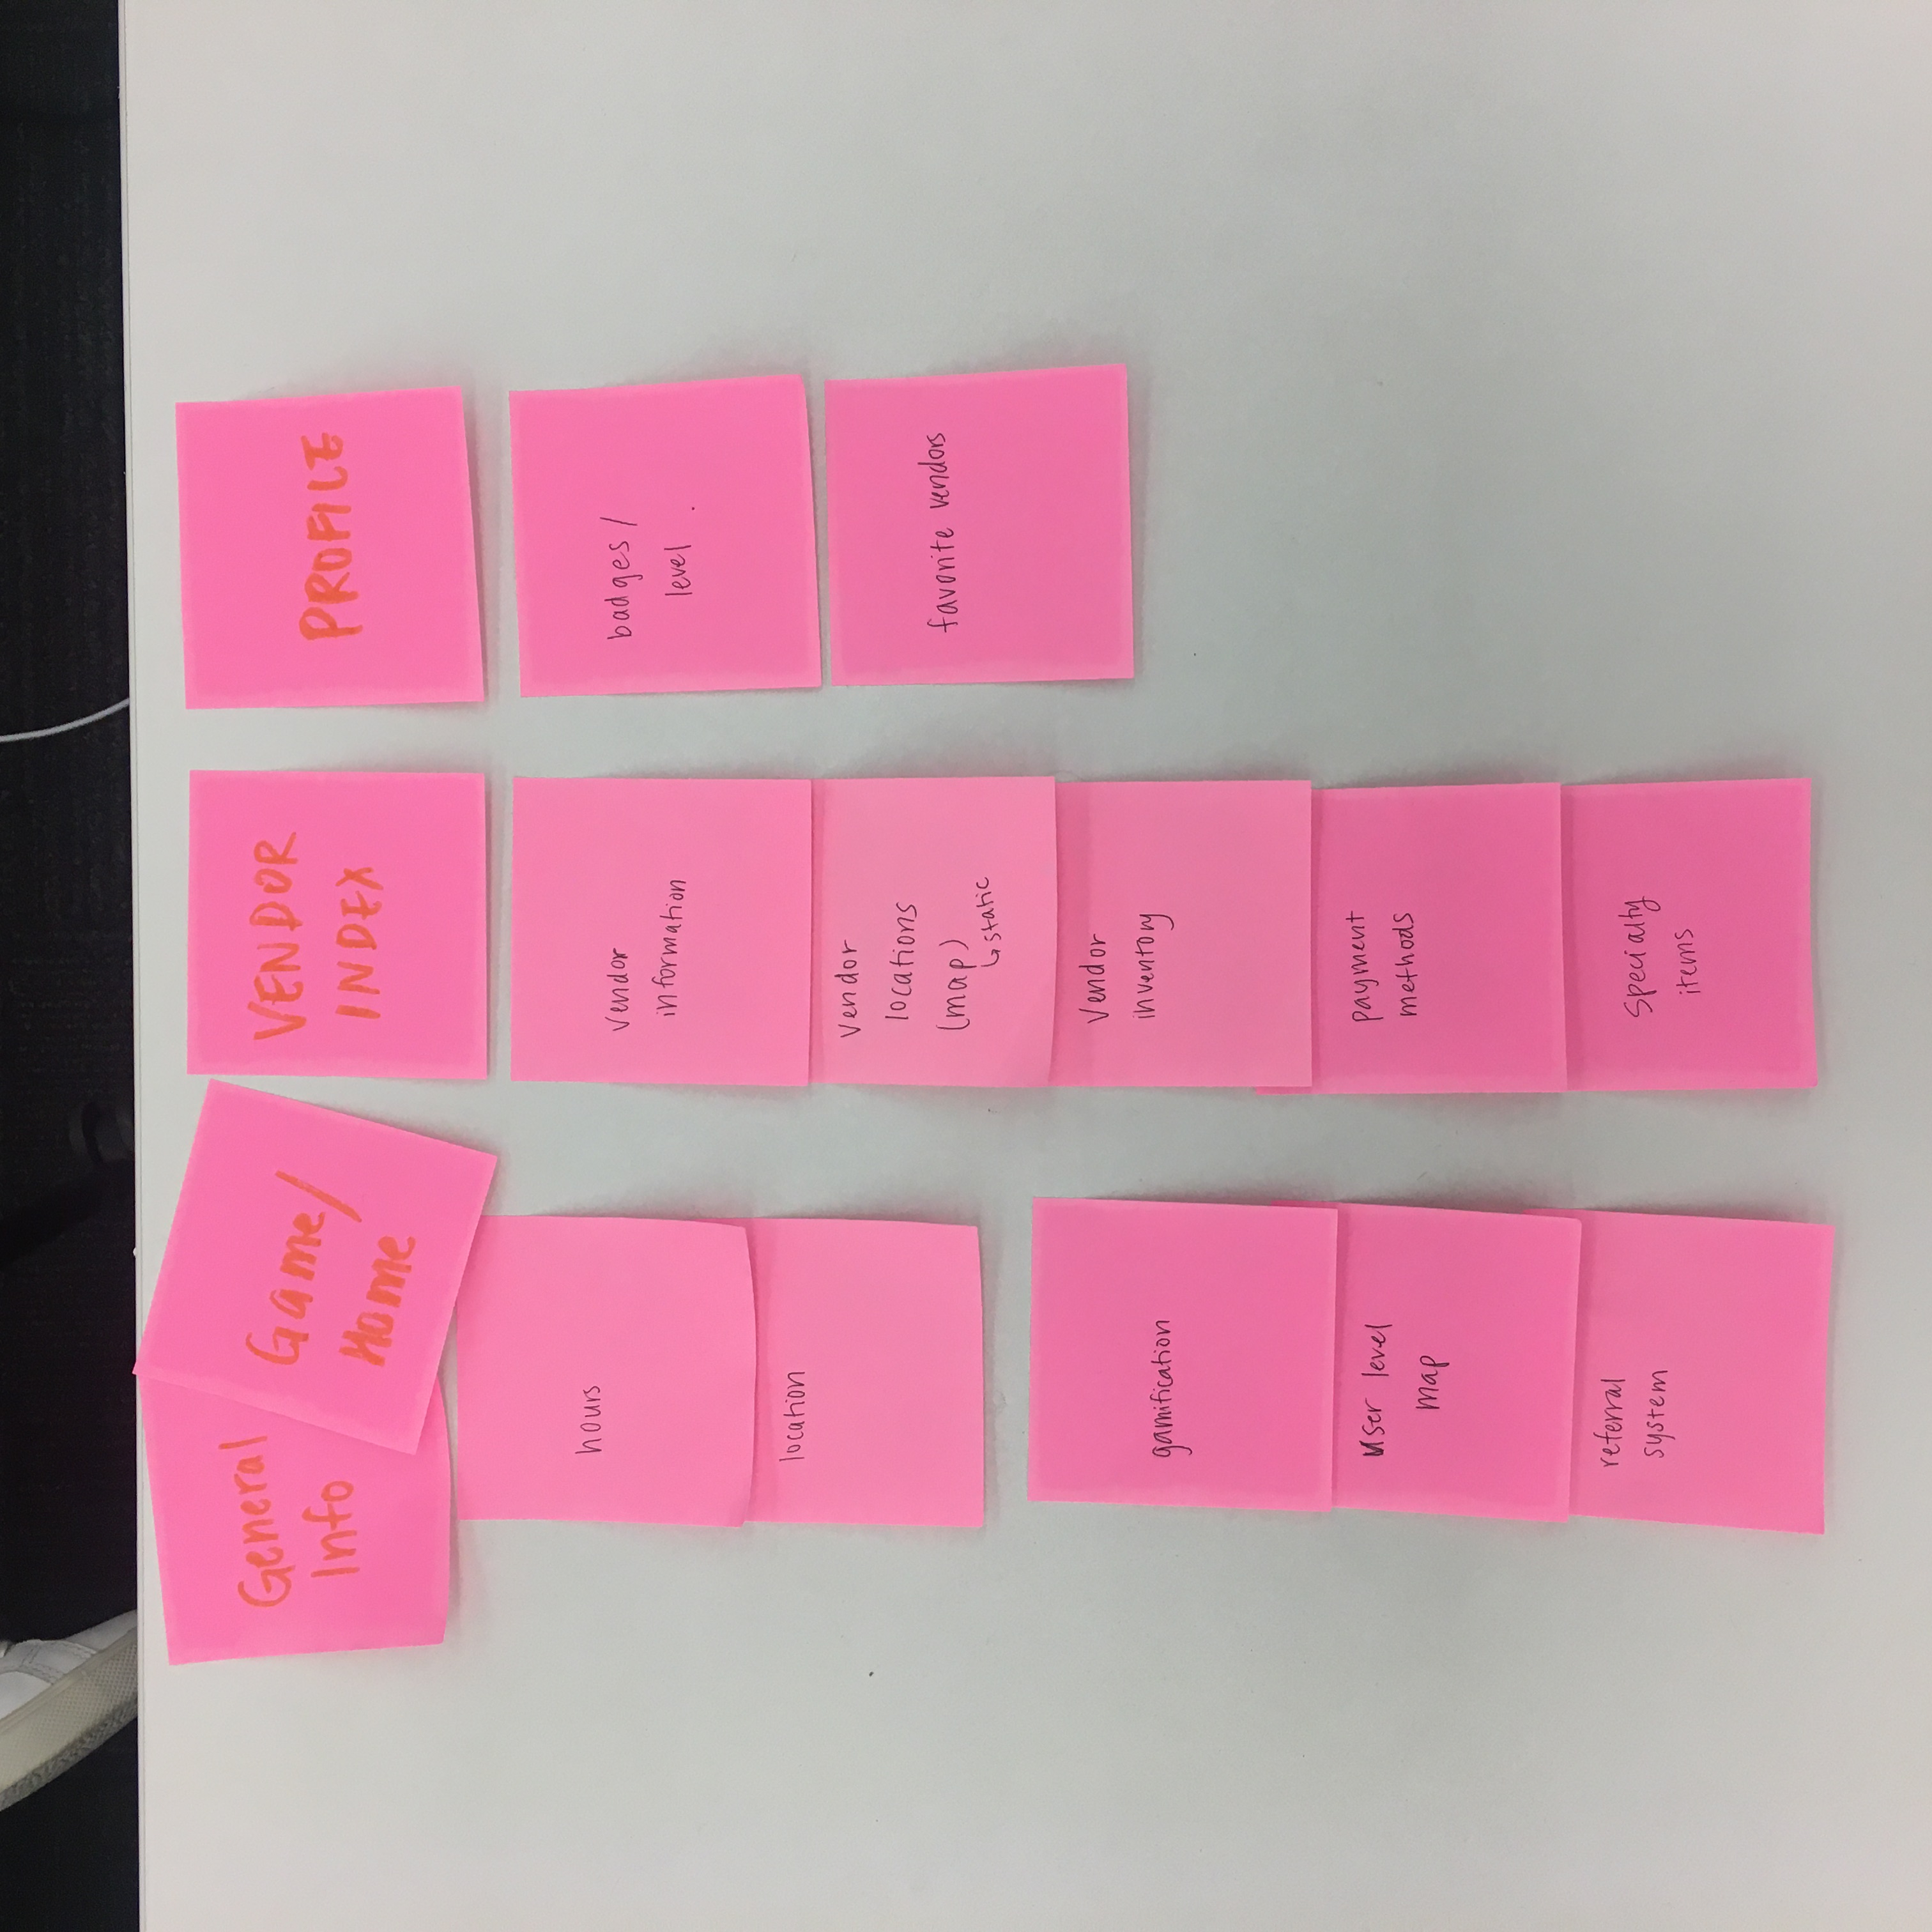 General
Info
Game/
Home
hours
location
gamification
user level
map
referral
system
VENDOR
INDEX
vendor
information
vendor
locations
(map)
↳ static
Vendor
inventory
payment
methods
Specialty
items
PROFILE
badges/
level .
favorite vendors